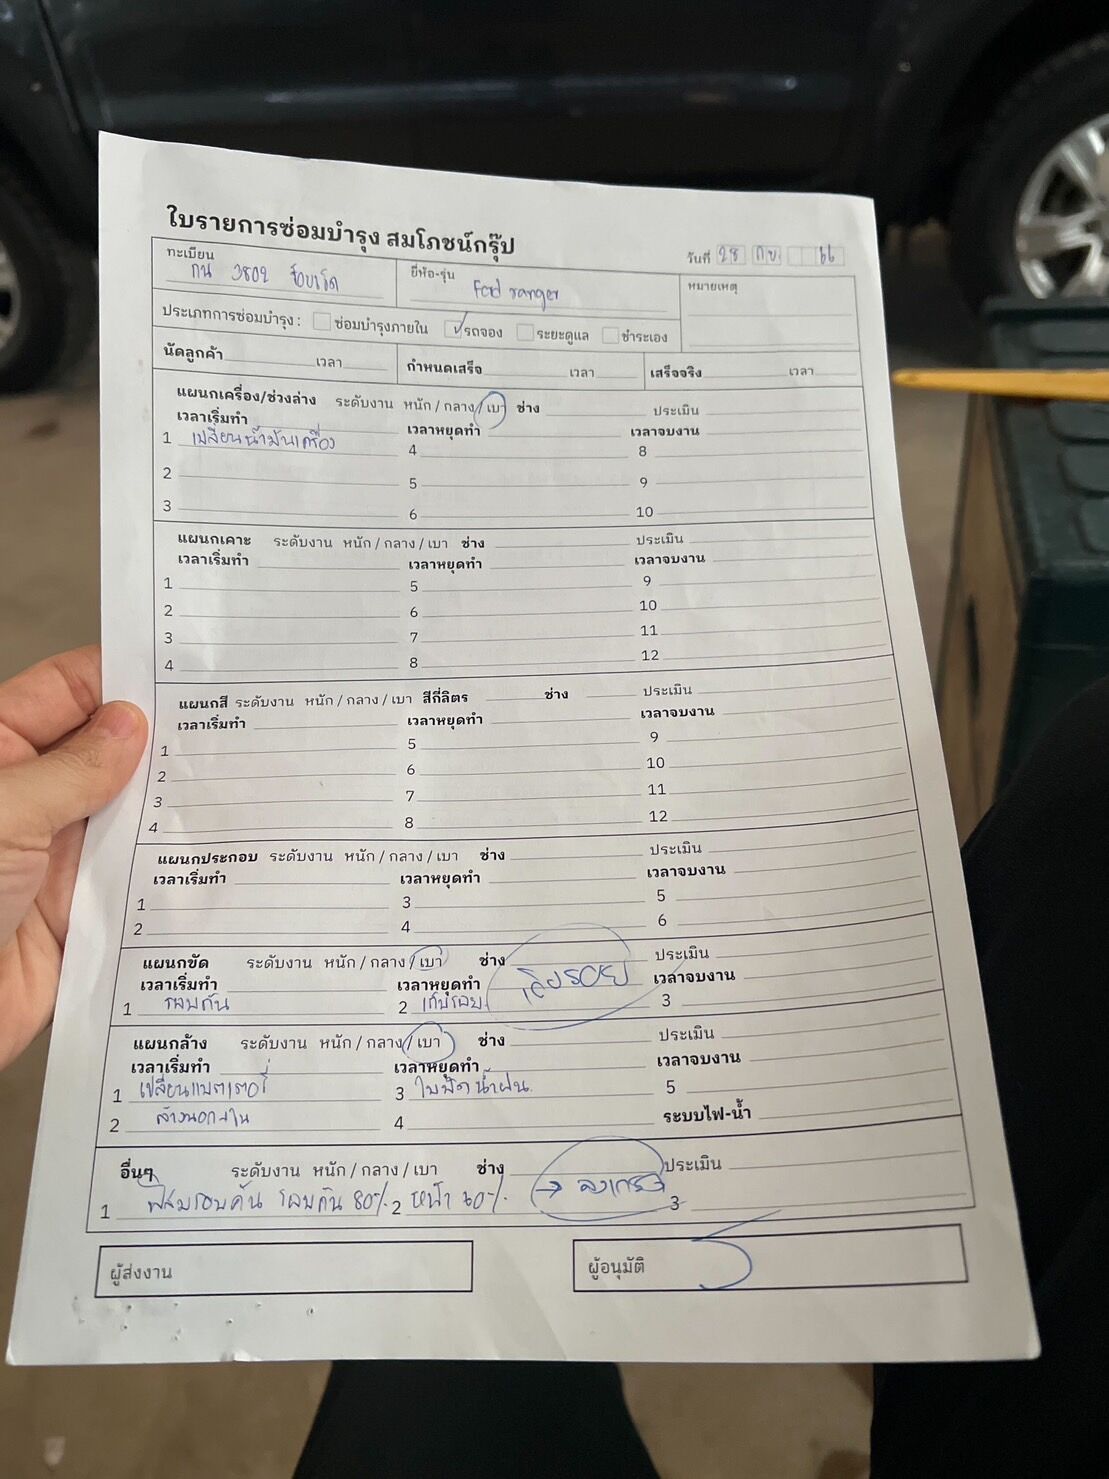 ใบรายการซ่อมบำรุง สมโภชน์กรุ๊ป
วันที่ 28 กย. 66
ทะเบียน กน 3802 ร้อยเอ็ด ยี่ห้อ-รุ่น Ford ranger หมายเหตุ
ประเภทการซ่อมบำรุง : ซ่อมบำรุงภายใน ✓ รถจอง ระยะดูแล ชำระเอง
นัดลูกค้า เวลา กำหนดเสร็จ เวลา เสร็จจริง เวลา
แผนกเครื่อง/ช่วงล่าง ระดับงาน หนัก / กลาง / เบา ช่าง ประเมิน
เวลาเริ่มทำ เวลาหยุดทำ เวลาจบงาน
1 เปลี่ยนน้ำมันเครื่อง 4 8
2 5 9
3 6 10
แผนกเคาะ ระดับงาน หนัก / กลาง / เบา ช่าง ประเมิน
เวลาเริ่มทำ เวลาหยุดทำ เวลาจบงาน
1 5 9
2 6 10
3 7 11
4 8 12
แผนกสี ระดับงาน หนัก / กลาง / เบา สีกี่ลิตร ช่าง ประเมิน
เวลาเริ่มทำ เวลาหยุดทำ เวลาจบงาน
1 5 9
2 6 10
3 7 11
4 8 12
แผนกประกอบ ระดับงาน หนัก / กลาง / เบา ช่าง ประเมิน
เวลาเริ่มทำ เวลาหยุดทำ เวลาจบงาน
1 3 5
2 4 6
แผนกขัด ระดับงาน หนัก / กลาง / เบา ช่าง ประเมิน
เวลาเริ่มทำ เวลาหยุดทำ เวลาจบงาน
1 รอบคัน 2 เก็บรอย 3
แผนกล้าง ระดับงาน หนัก / กลาง / เบา ช่าง ประเมิน
เวลาเริ่มทำ เวลาหยุดทำ เวลาจบงาน
1 เปลี่ยนแบตเตอรี่ 3 ใบปัดน้ำฝน 5
2 ล้างนอก-ใน 4 ระบบไฟ-น้ำ
อื่นๆ ระดับงาน หนัก / กลาง / เบา ช่าง ประเมิน
1 ฟิล์มรอบคัน รอบคัน 80% 2 หน้า 60% → 3
ผู้ส่งงาน ผู้อนุมัติ